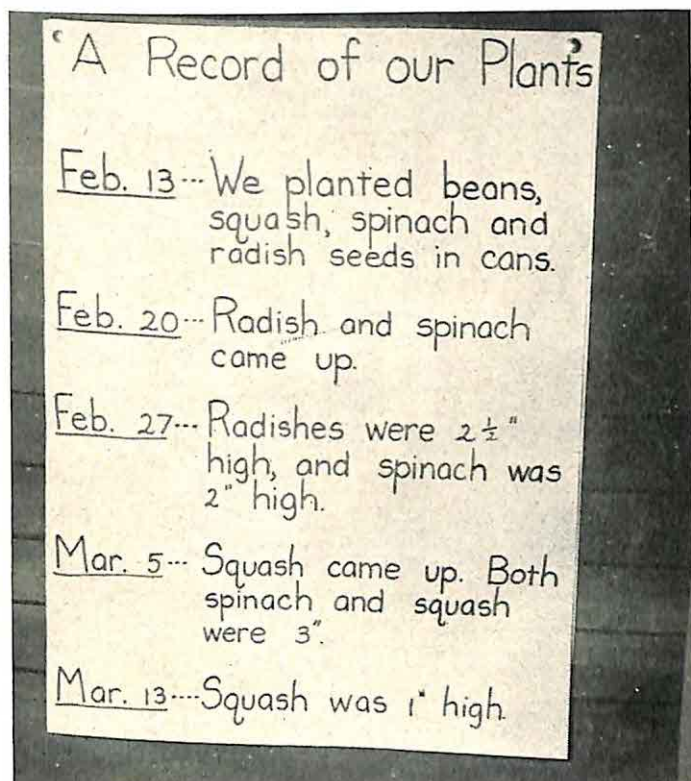 A Record of our Plants
Feb. 13---We planted beans,
squash, spinach and
radish seeds in cans.
Feb. 20---Radish and spinach
came up.
Feb. 27---Radishes were 2½"
high, and spinach was
2" high.
Mar. 5---Squash came up. Both
spinach and squash
were 3".
Mar. 13----Squash was 1" high.